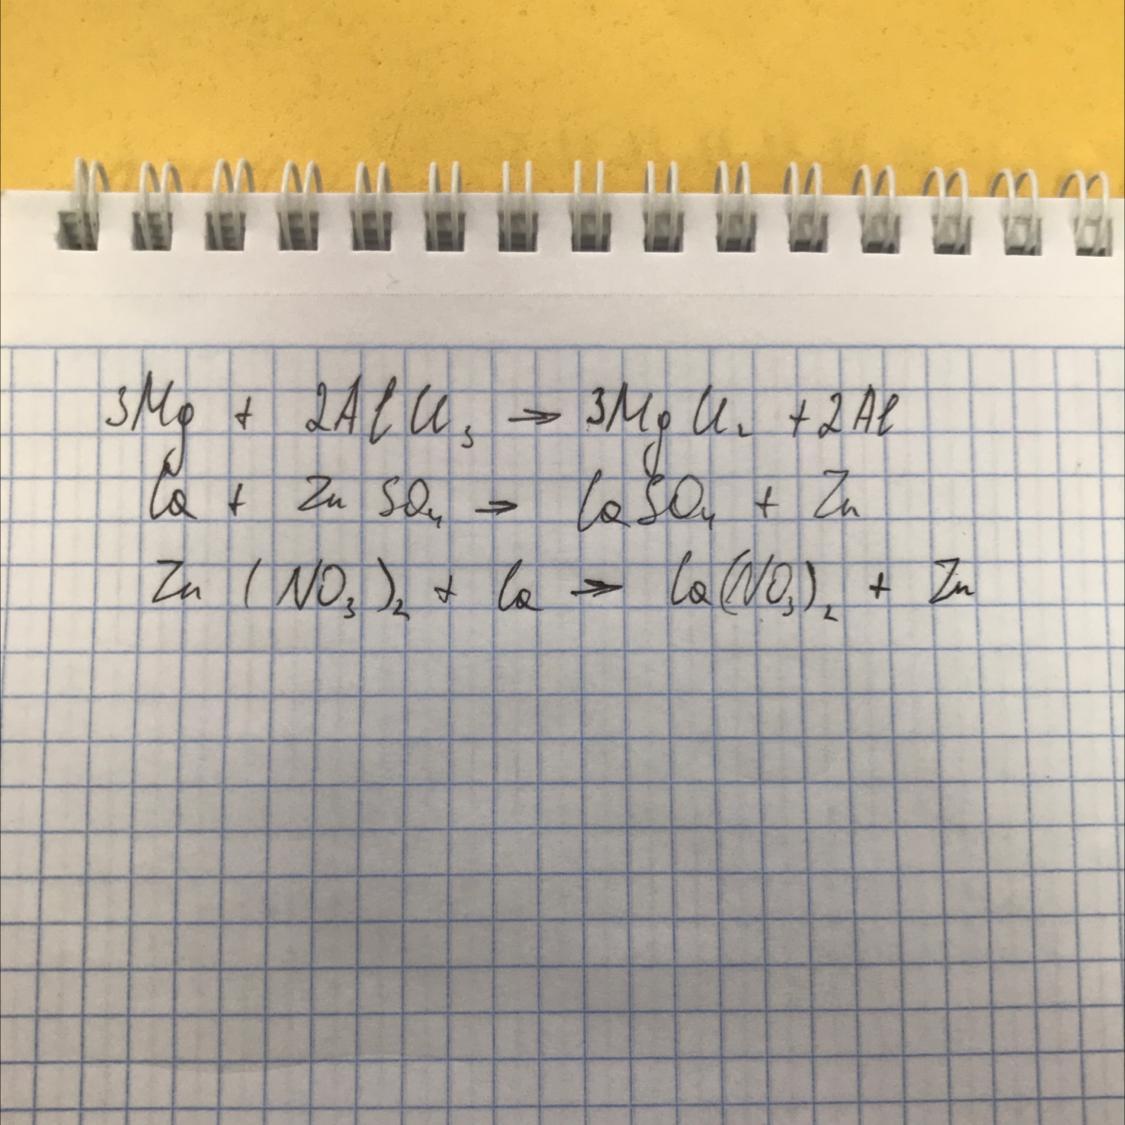 3Mg + 2AlCl₃ → 3MgCl₂ + 2Al
Ca + ZnSO₄ → CaSO₄ + Zn
Zn(NO₃)₂ + Ca → Ca(NO₃)₂ + Zn